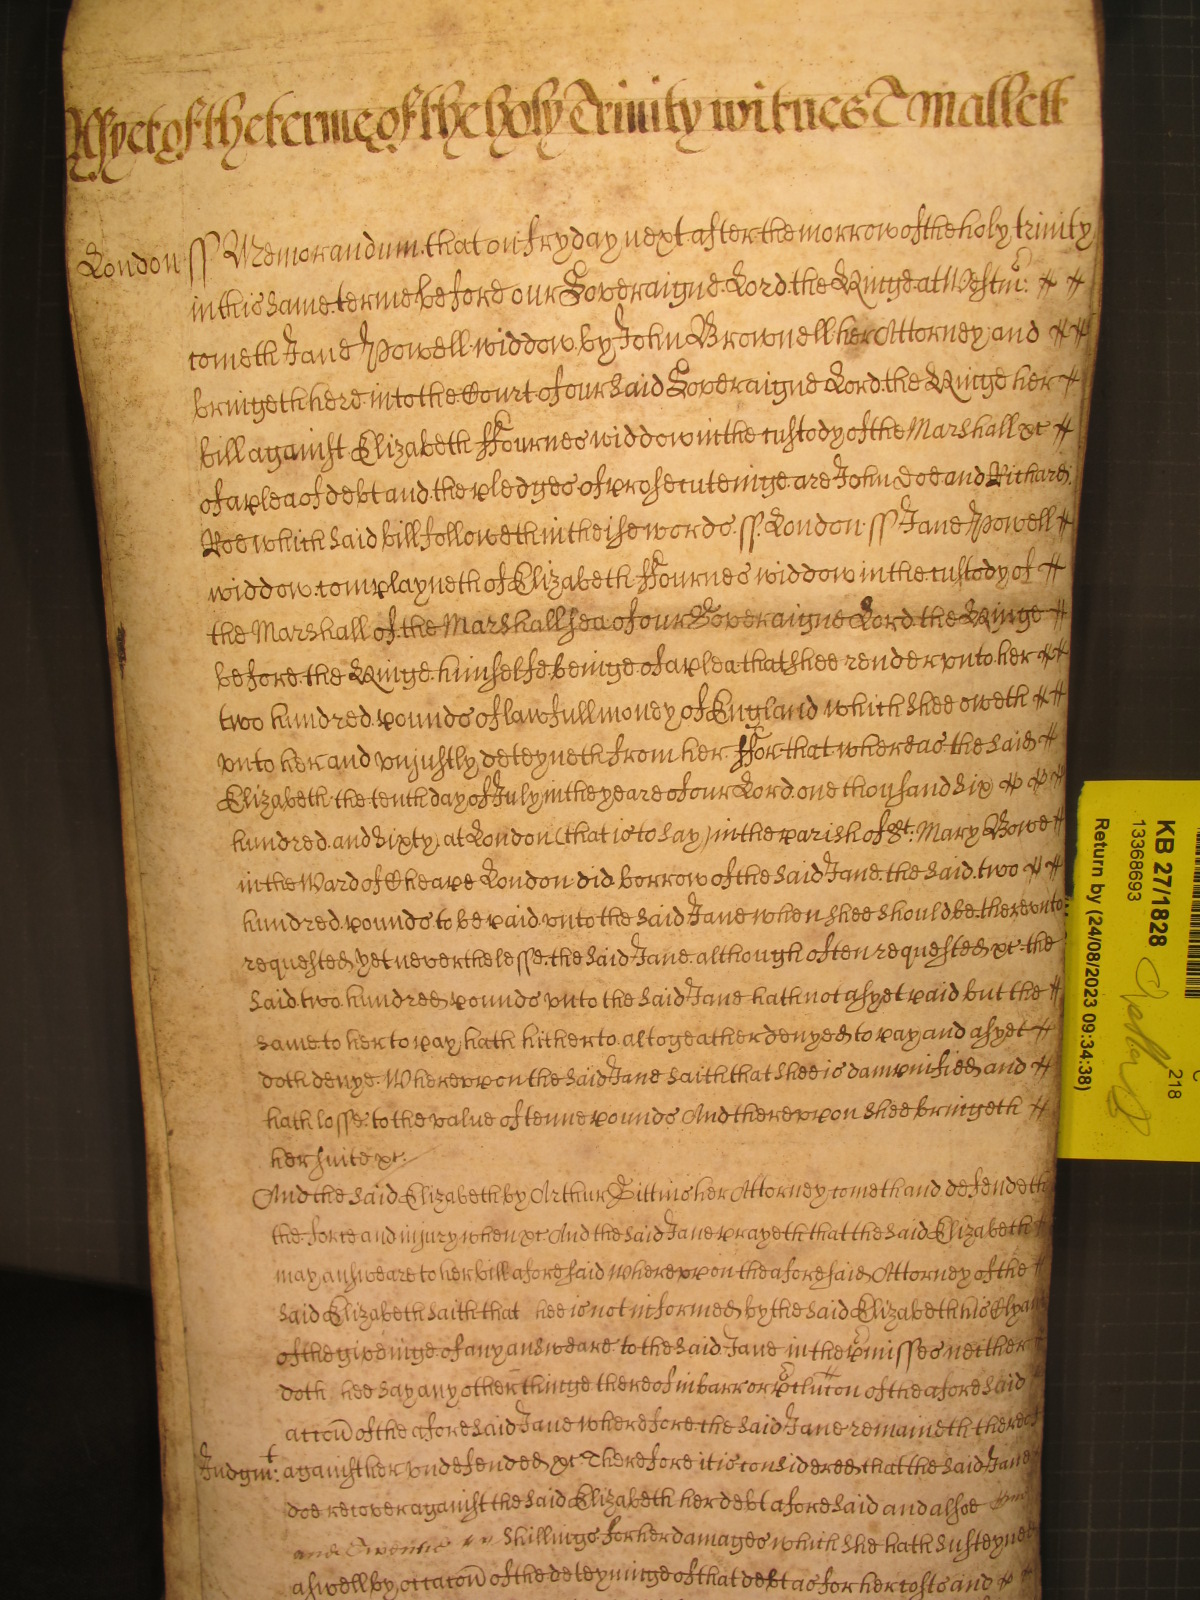 As yet of the terme of the holy Trinity witnes T Mallett
London ss Memorandum that on fryday next after the morrow of the holy trinity
in this same terme before our Soveraigne Lord the Kinge at Westm:
cometh Jane Powell widdow by John Brownell her Attorney and
bringeth here into the Court of our said Soveraigne Lord the Kinge her
bill against Elizabeth ffournes widdow in the custody of the Marshall &c
of a plea of debt and the pledges of prosecuteinge are John Doe and Richard
Roe which said bill followeth in theise words ss. London ss Jane Powell
widdow complayneth of Elizabeth ffournes widdow in the custody of
the Marshall of the Marshallsea of our Soveraigne Lord the Kinge
before the Kinge himselfe beinge of a plea that shee render vnto her
two hundred pounds of lawfull money of England which shee oweth
vnto her and vnjustly deteyneth from her ffor that whereas the said
Elizabeth the tenth day of July in the yeare of our Lord one thousand six
hundred and sixty at London (that is to say) in the parish of St. Mary Bowe
in the Ward of Cheape London did borrow of the said Jane the said two
hundred pounds to be paid vnto the said Jane when shee should be therevnto
requested yet neverthelesse the said Jane although often requested &c the
said two hundred pounds vnto the said Jane hath not as yet paid but the
same to her to pay hath hitherto altogeather denyed to pay and as yet
doth denye Wherevpon the said Jane saith that shee is dampnified and
hath losse to the value of tenne pounds And therevpon shee bringeth
her suite &c.
And the said Elizabeth by Arthur Gittins her Attorney cometh and defendeth
the force and injury when &c And the said Jane prayeth that the said Elizabeth
may answeare to her bill aforesaid Wherevpon the aforesaid Attorney of the
said Elizabeth saith that hee is not informed by the said Elizabeth his Clyant
of the giveinge of any answeare to the said Jane in the pmisses neither
doth hee say any other thinge thereof in barr or pclucon of the aforesaid
accon of the aforesaid Jane wherefore the said Jane remaineth thereof
Judgmt: against her vndefended &c Therefore it is considered that the said Jane
doe recover against the said Elizabeth her debt aforesaid and alsoe
and shillings for her damages which she hath susteyned
aswell by occacon of the deteyninge of that debt as for her costs and
KB 27/1828
13368693
218
Return by (24/08/2023 09:34:38)